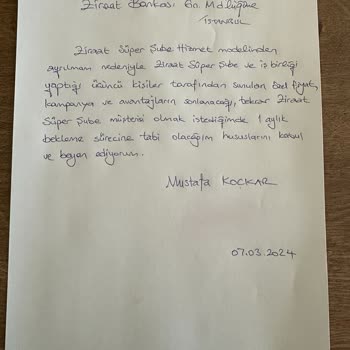 Ziraat Bankası Gn. Mdlüğüne
İSTANBUL
Ziraat Süper Şube Hizmet modelinden
ayrılmam nedeniyle Ziraat Süper Şube ve iş birliği
yaptığı üçüncü kişiler tarafından sunulan özel fiyat,
kampanya ve avantajların sonlanacağı, tekrar Ziraat
Süper Şube müşterisi olmak istediğimde 1 aylık
bekleme sürecine tabi olacağım hususlarını kabul
ve beyan ediyorum.
Mustafa KOÇKAR
07.03.2024